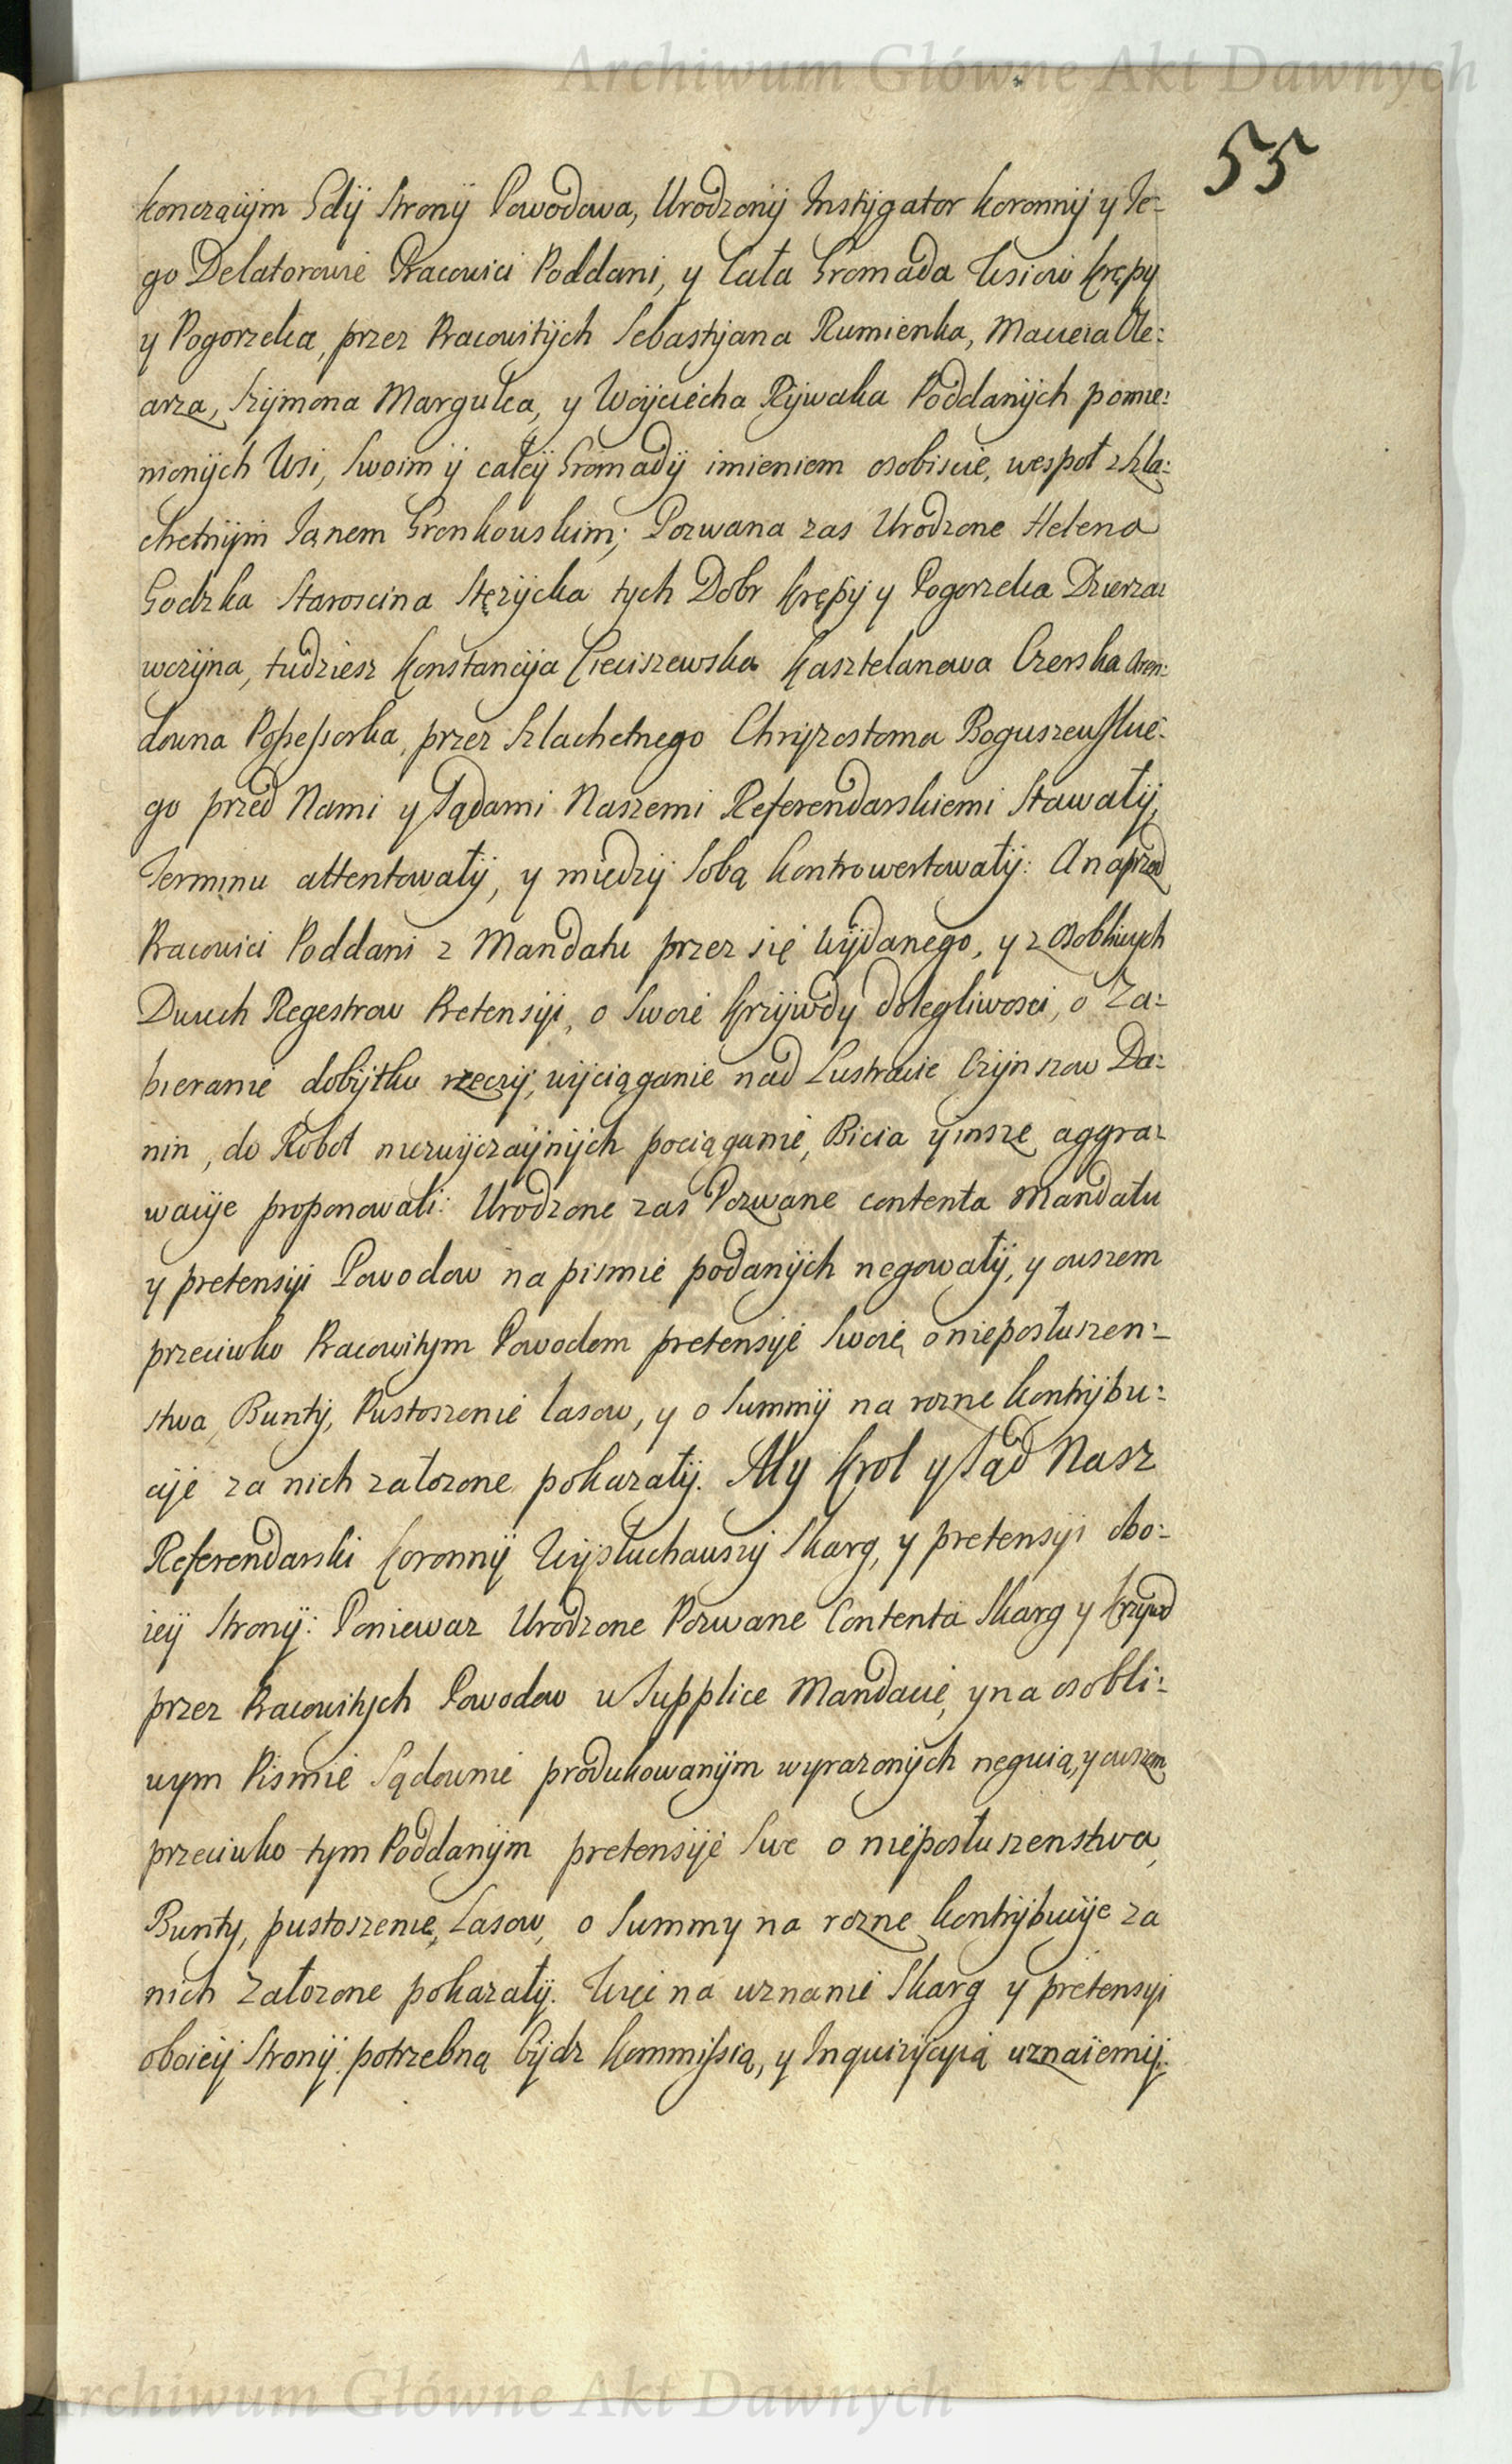 Archiwum Główne Akt Dawnych
55
konczącÿm Gdÿ Stronÿ Powodowa, Urodzonÿ Instÿgator Koronnÿ y Je=
go Delatorowie Pracowici Poddani, y Cała Gromada Wsiow Krępÿ
y Pogorzelca, przez Pracowitÿch Sebastÿana Rumienka, Macieia Ole=
arza, Szÿmona Margulca, y Woÿciecha Rÿwaka Poddanÿch pomie=
nionÿch Wsi, Swoim ÿ całeÿ Gromadÿ imieniem osobiscie, wespoł z Szla=
chetnÿm Janem Gronkowskim; Pozwana zas Urodzone Helena
Godzka Staroscina Stęzÿcka tych Dobr Krępÿ y Pogorzelca Dzierza=
wczÿna, tudziesz Konstancÿa Cieciszewska Kasztelanowa Czerska Aren=
downa Possessorka, przez Szlachetnego Chrÿzostoma Boguszewskie=
go przed Nami y Sądami Naszemi Referendarskiemi Stawałÿ,
Terminu attentowałÿ, y międzÿ Sobą kontrowertowałÿ: A naprzod
Pracowici Poddani z Mandatu przez się wÿdanego, y z Osobliwych
Dwuch Regestrow Pretensÿi, o Swoie Krzÿwdy dolegliwosci, o Za=
bieranie dobÿtku rzeczÿ, wÿciąganie nad Lustracie Czÿnszow Da=
nin, do Robot niezwÿczaÿnÿch pociąganie, Bicia ÿ insze aggra=
wacÿe proponowali: Urodzone zas Pozwane contenta Mandatu
y pretensÿi Powodow na pismie podanÿch negowałÿ, y owszem
przeciwko Pracowitym Powodom pretensÿe Swoie, o nieposłuszen=
stwa, Buntÿ, Pustoszenie lasow, y o Summÿ na rozne kontrÿbu=
cÿe za nich załozone pokazałÿ. My Krol y Sąd Nasz
Referendarski Koronnÿ Wÿsłuchawszÿ Skarg, y pretensÿi obo=
ieÿ Stronÿ: Poniewaz Urodzone Pozwane Contenta Skarg y Krzywd
przez Pracowitÿch Powodow w Supplice Mandacie, y na osobli=
wym Pismie Sądownie produkowanÿm wyrazonÿch neguią, y owszem
przeciwko tym Poddanÿm pretensÿe Swe o nieposłuszenstwa,
Bunty, pustoszenie, Lasow, o Summy na rozne kontrÿbucÿe za
nich załozone pokazałÿ. Więc na uznanie Skarg y pretensyi
oboieÿ Stronÿ potrzebną bÿdz Kommissią, y Inquizÿcÿią uznaiemÿ:
Archiwum Główne Akt Dawnych